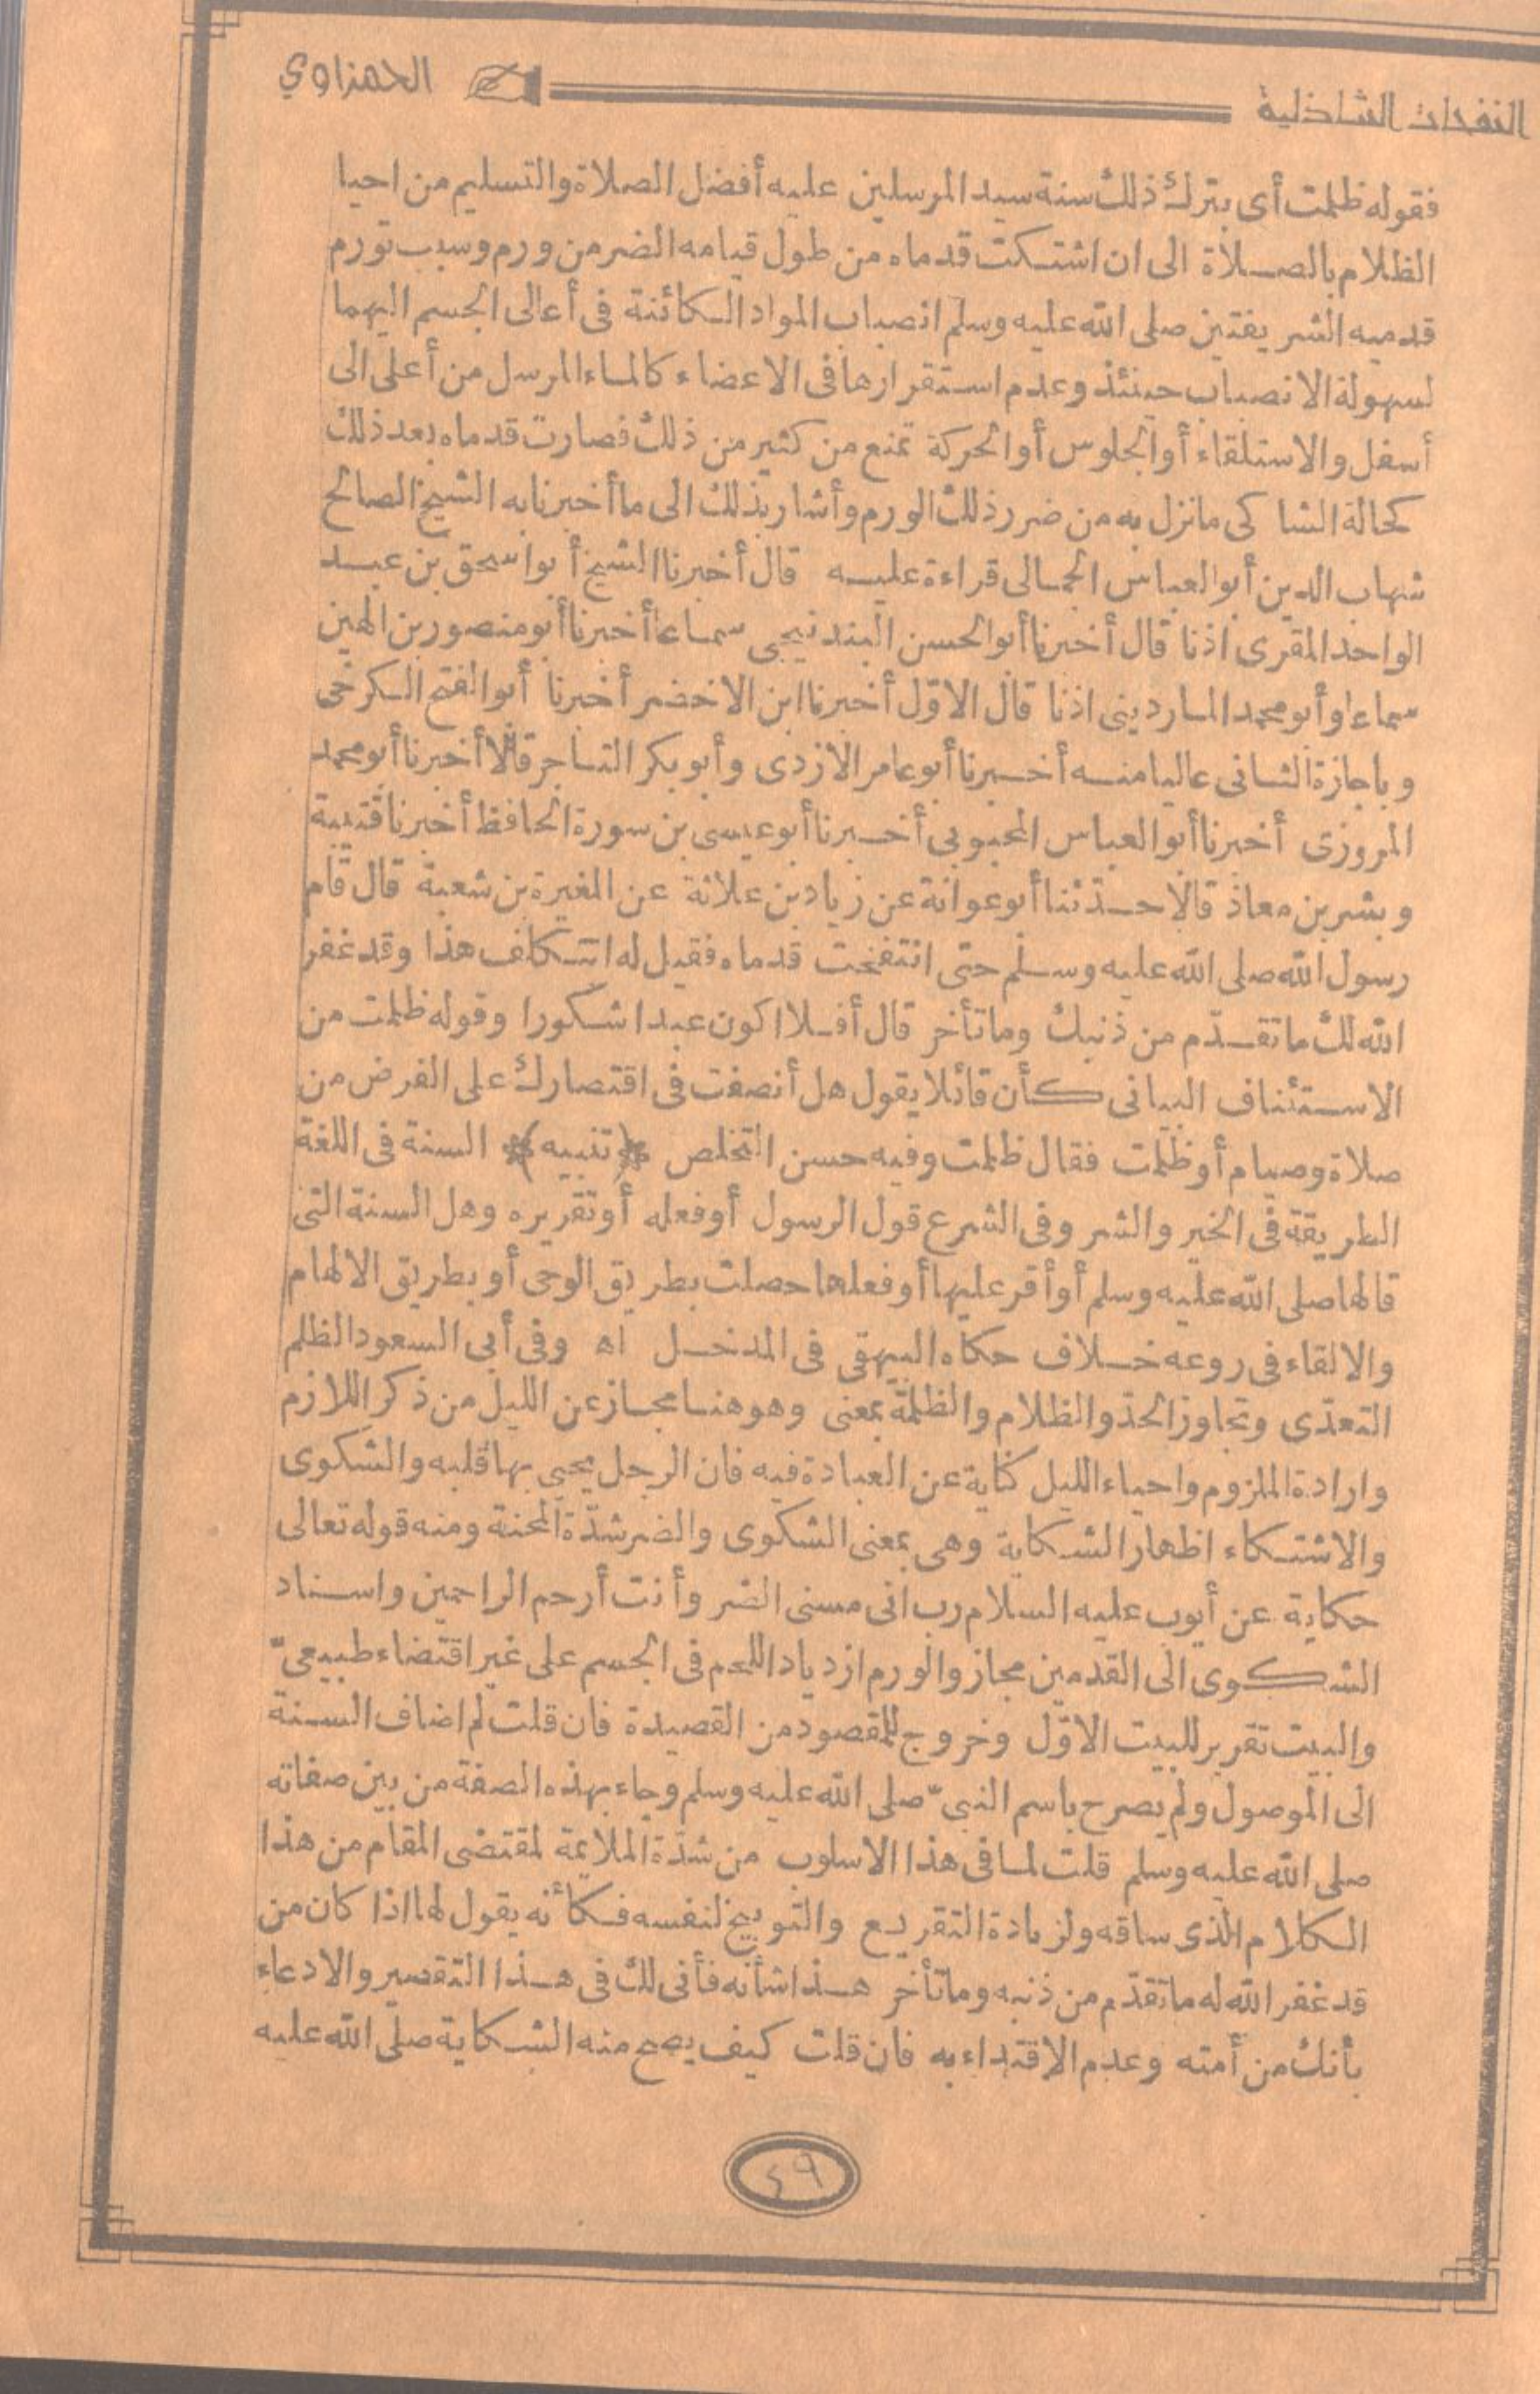 النفحات الشاذلية الحمزاوي
فقوله ظلمت أى بترك ذلك سنة سيد المرسلين عليه أفضل الصلاة والتسليم من احيا
الظلام بالصلاة الى ان اشتكت قدماه من طول قيامه الضر من ورم وسبب تورم
قدميه الشريفتين صلى الله عليه وسلم انصباب المواد الكائنة فى أعالى الجسم اليهما
لسهولة الانصباب حينئذ وعدم استقرارها فى الاعضاء كالماء المرسل من أعلى الى
أسفل والاستلقاء أو الجلوس أو الحركة تمنع من كثير من ذلك فصارت قدماه بعد ذلك
كحالة الشاكى مانزل به من ضرر ذلك الورم وأشار بذلك الى ما أخبرنا به الشيخ الصالح
شهاب الدين أبو العباس الجمالى قراءة عليه قال أخبرنا الشيخ أبو اسحق بن عبد
الواحد المقرى اذنا قال أخبرنا أبو الحسن البندنيجى سماعا أخبرنا أبو منصور بن الهين
سماعا وأبو محمد الماردينى اذنا قال الاوّل أخبرنا ابن الاخضر أخبرنا أبو الفتح الكرخى
وباجازة الثانى عاليا منه أخبرنا أبو عامر الازدى وأبو بكر التاجر قالا أخبرنا أبو محمد
المروزى أخبرنا أبو العباس المحبوبى أخبرنا أبو عيسى بن سورة الحافظ أخبرنا قتيبة
وبشر بن معاذ قالا حدّثنا أبو عوانة عن زياد بن علاثة عن المغيرة بن شعبة قال قام
رسول الله صلى الله عليه وسلم حتى انتفخت قدماه فقيل له اتتكلف هذا وقد غفر
الله لك ما تقدّم من ذنبك وما تأخر قال أفلا اكون عبدا شكورا وقوله ظلمت من
الاستئناف البيانى كأن قائلا يقول هل أنصفت فى اقتصارك على الفرض من
صلاة وصيام أو ظلمت فقال ظلمت وفيه حسن التخلص ﴿تنبيه﴾ السنة فى اللغة
الطريقة فى الخير والشر وفى الشرع قول الرسول أو فعله أو تقريره وهل السنة التى
قالها صلى الله عليه وسلم أو أقر عليها أو فعلها حصلت بطريق الوحى أو بطريق الالهام
والالقاء فى روعه خلاف حكاه البيهقى فى المدخل اه وفى أبى السعود الظلم
التعدّى وتجاوز الحدّ والظلام والظلمة بمعنى وهو هنا مجاز عن الليل من ذكر اللازم
وارادة الملزوم واحياء الليل كناية عن العبادة فيه فان الرجل يحيى بها قلبه والشكوى
والاشتكاء اظهار الشكاية وهى بمعنى الشكوى والضر شدّة المحنة ومنه قوله تعالى
حكاية عن أيوب عليه السلام رب انى مسنى الضر وأنت أرحم الراحمين واسناد
الشكوى الى القدمين مجاز والورم ازدياد اللحم فى الجسم على غير اقتضاء طبيعىّ
والبيت تقرير للبيت الاوّل وخروج للمقصود من القصيدة فان قلت لم اضاف السنة
الى الموصول ولم يصرح باسم النبىّ صلى الله عليه وسلم وجاء بهذه الصفة من بين صفاته
صلى الله عليه وسلم قلت لما فى هذا الاسلوب من شدّة الملائمة لمقتضى المقام من هذا
الكلام الذى ساقه ولزيادة التقريع والتوبيخ لنفسه فكأنه يقول لها اذا كان من
قد غفر الله له ما تقدّم من ذنبه وما تأخر هذا شأنه فأنى لك فى هذا التقصير والادعاء
بأنك من أمته وعدم الاقتداء به فان قلت كيف يصح منه الشكاية صلى الله عليه
٤٩